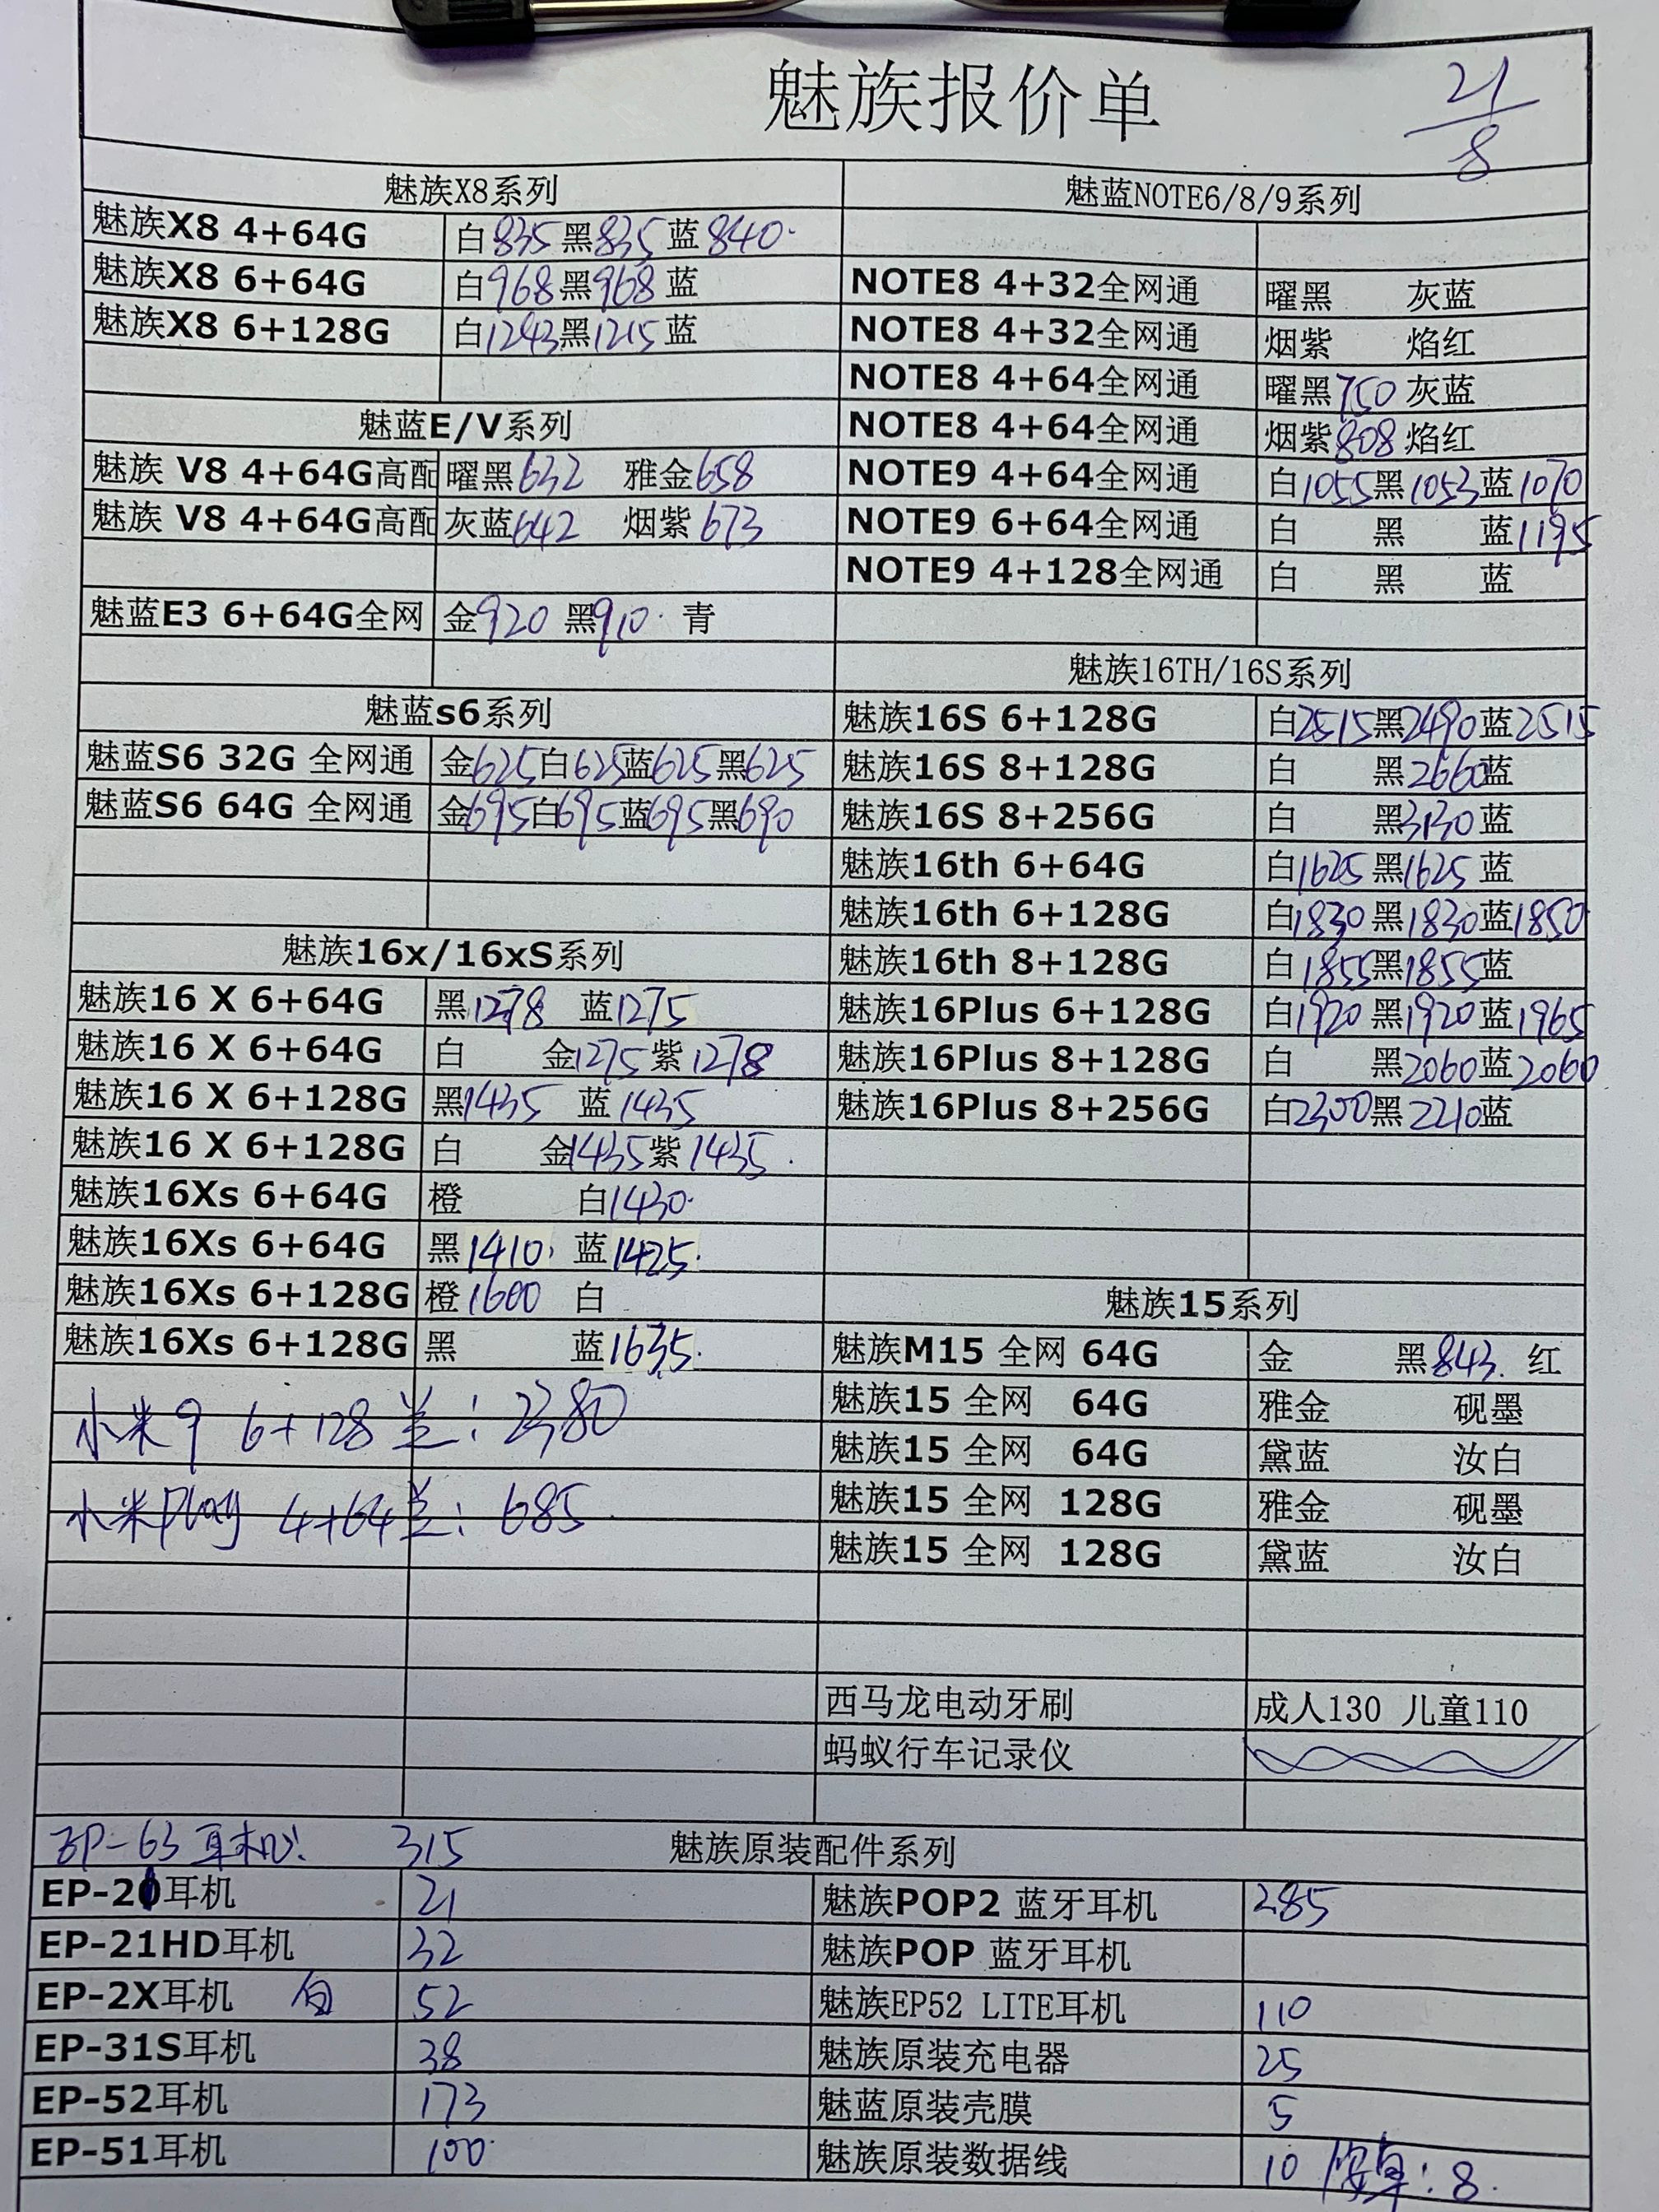 魅族报价单
21/8
魅族X8系列
魅族X8 4+64G 白835 黑835 蓝840
魅族X8 6+64G 白968 黑968 蓝
魅族X8 6+128G 白1243 黑1215 蓝
魅蓝E/V系列
魅族 V8 4+64G高配 曜黑632 雅金658
魅族 V8 4+64G高配 灰蓝642 烟紫673
魅蓝E3 6+64G全网 金920 黑910 青
魅蓝s6系列
魅蓝S6 32G 全网通 金625 白625 蓝625 黑625
魅蓝S6 64G 全网通 金695 白695 蓝695 黑690
魅族16x/16xS系列
魅族16 X 6+64G 黑1278 蓝1275
魅族16 X 6+64G 白 金1275 紫1278
魅族16 X 6+128G 黑1435 蓝1435
魅族16 X 6+128G 白 金1435 紫1435
魅族16Xs 6+64G 橙 白1430
魅族16Xs 6+64G 黑1410 蓝1425
魅族16Xs 6+128G 橙1600 白
魅族16Xs 6+128G 黑 蓝1635
小米9 6+128 兰:2380
小米play 4+64 兰:685
魅蓝NOTE6/8/9系列
NOTE8 4+32全网通 曜黑 灰蓝
NOTE8 4+32全网通 烟紫 焰红
NOTE8 4+64全网通 曜黑750 灰蓝
NOTE8 4+64全网通 烟紫808 焰红
NOTE9 4+64全网通 白1055 黑1053 蓝1070
NOTE9 6+64全网通 白 黑 蓝1195
NOTE9 4+128全网通 白 黑 蓝
魅族16TH/16S系列
魅族16S 6+128G 白2515 黑2490 蓝2515
魅族16S 8+128G 白 黑2660 蓝
魅族16S 8+256G 白 黑3130 蓝
魅族16th 6+64G 白1625 黑1625 蓝
魅族16th 6+128G 白1830 黑1830 蓝1850
魅族16th 8+128G 白1855 黑1855 蓝
魅族16Plus 6+128G 白1920 黑1920 蓝1965
魅族16Plus 8+128G 白 黑2060 蓝2060
魅族16Plus 8+256G 白2300 黑2210 蓝
魅族15系列
魅族M15 全网 64G 金 黑843. 红
魅族15 全网 64G 雅金 砚墨
魅族15 全网 64G 黛蓝 汝白
魅族15 全网 128G 雅金 砚墨
魅族15 全网 128G 黛蓝 汝白
西马龙电动牙刷 成人130 儿童110
蚂蚁行车记录仪
EP-63耳机: 315 魅族原装配件系列
EP-20耳机 21 魅族POP2 蓝牙耳机 285
EP-21HD耳机 32 魅族POP 蓝牙耳机
EP-2X耳机 白 52 魅族EP52 LITE耳机 110
EP-31S耳机 38 魅族原装充电器 25
EP-52耳机 173 魅蓝原装壳膜 5
EP-51耳机 100 魅族原装数据线 10 :8.